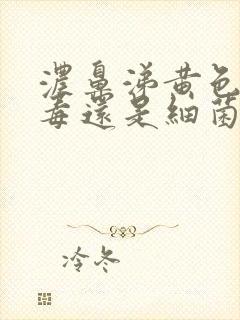 濃鼻涕黄色
毒還是細菌
冷冬